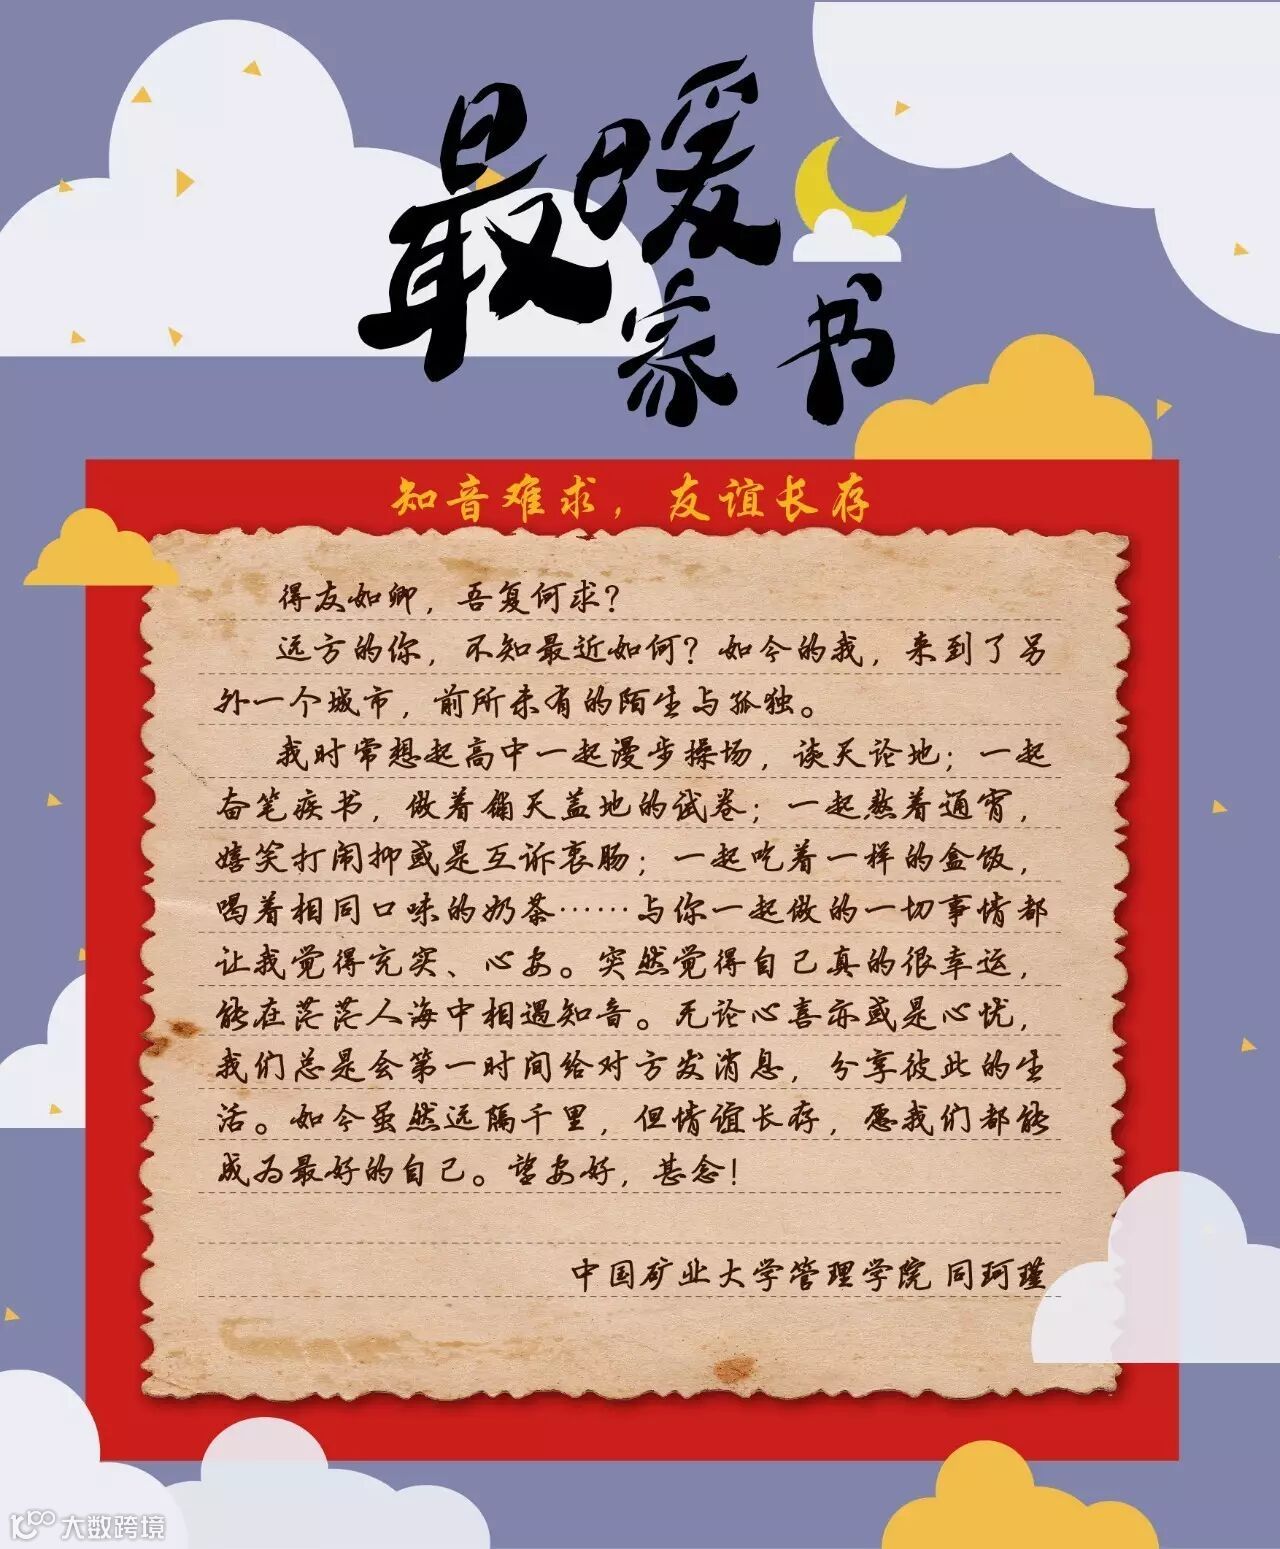 最暖
家书
知音难求，友谊长存
得友如卿，吾复何求？
远方的你，不知最近如何？如今的我，来到了另
外一个城市，前所未有的陌生与孤独。
我时常想起高中一起漫步操场，谈天论地；一起
奋笔疾书，做着铺天盖地的试卷；一起熬着通宵，
嬉笑打闹抑或是互诉衷肠；一起吃着一样的盒饭，
喝着相同口味的奶茶……与你一起做的一切事情都
让我觉得充实、心安。突然觉得自己真的很幸运，
能在茫茫人海中相遇知音。无论心喜亦或是心忧，
我们总是会第一时间给对方发消息，分享彼此的生
活。如今虽然远隔千里，但情谊长存，愿我们都能
成为最好的自己。望安好，甚念！
中国矿业大学管理学院 同珂瑾
大数跨境